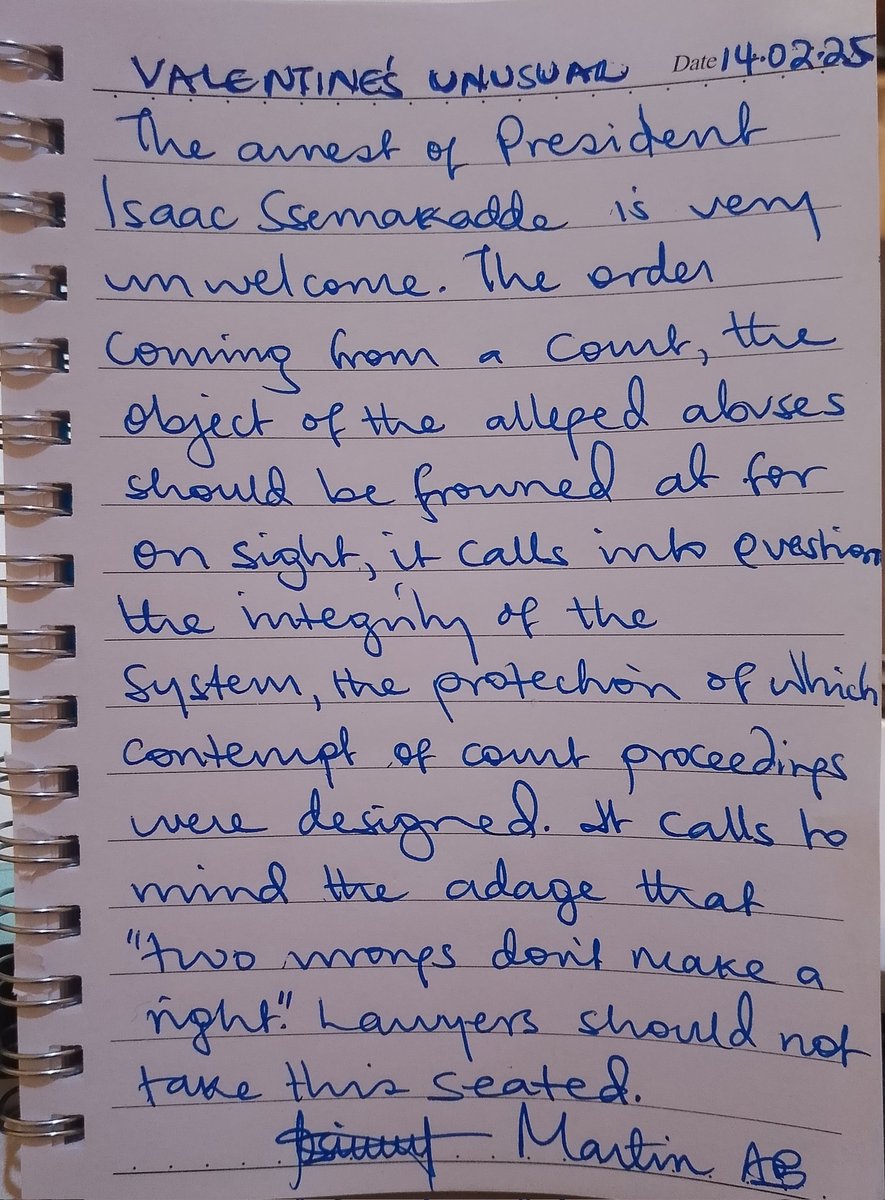 VALENTINE'S UNUSUAL Date 14.02.25
The arrest of President
Isaac Ssemakadde is very
unwelcome. The order
coming from a court, the
object of the alleged abuses
should be frowned at for
on sight, it calls into question
the integrity of the
system, the protection of which
contempt of court proceedings
were designed. It calls to
mind the adage that
"two wrongs don't make a
right." Lawyers should not
take this seated.
Martin AB